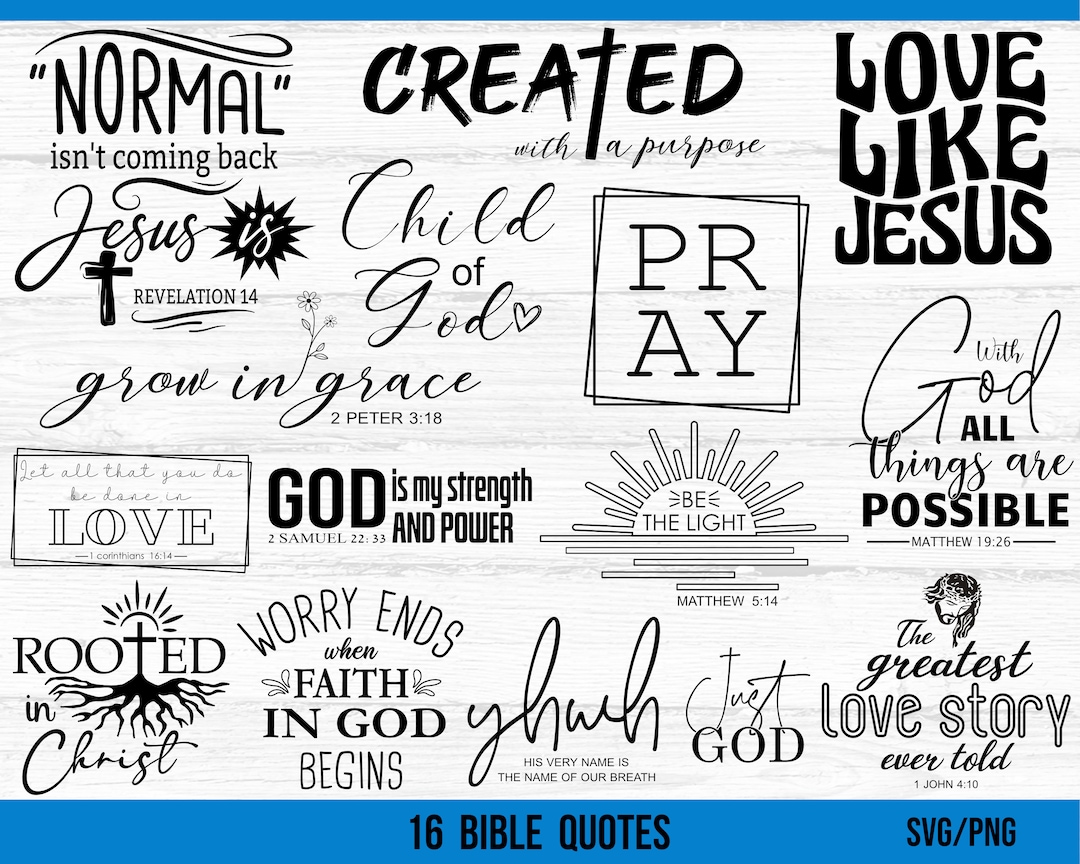 "NORMAL"
isn't coming back
Jesus is
REVELATION 14
CREATED
with a purpose
LOVE
LIKE
JESUS
Child
of
God
PR
AY
grow in grace
2 PETER 3:18
With
God
ALL
things are
POSSIBLE
MATTHEW 19:26
Let all that you do
be done in
LOVE
1 corinthians 16:14
GOD is my strength
AND POWER
2 SAMUEL 22:33
BE
THE LIGHT
MATTHEW 5:14
ROOTED
in
Christ
WORRY ENDS
when
FAITH
IN GOD
BEGINS
yhwh
HIS VERY NAME IS
THE NAME OF OUR BREATH
Just
GOD
The
greatest
love story
ever told
1 JOHN 4:10
16 BIBLE QUOTES
SVG/PNG